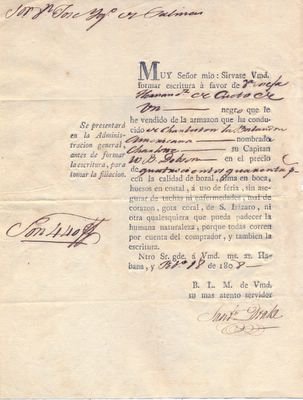 Sor. Dn. José
MUY Señor mio: Sirvase Vmd.
formar escritura á favor de Dn
de
Un negro que le
he vendido de la armazon que ha condu-
cido de Charleston la
Americana nombrada
su Capitan
W. B. en el precio
de quatrocientos quarenta p.
con la calidad de bozal, alma en boca,
huesos en costal, á uso de feria, sin ase-
gurar de tachas ni enfermedades, mal de
corazon, gota coral, de S. Lázaro, ni
otra qualesquiera que pueda padecer la
humana naturaleza, porque todas corren
por cuenta del comprador, y tambien la
escritura.
Ntro Sr. gde. á Vmd. ms. as. Ha-
bana, y 18 de 1808
B. L. M. de Vmd.
su mas atento servidor
Santo. Drake
Se presentará
en la Adminis-
tracion general,
antes de formar
la escritura, para
tomar la filiacion.
Son 440 ps